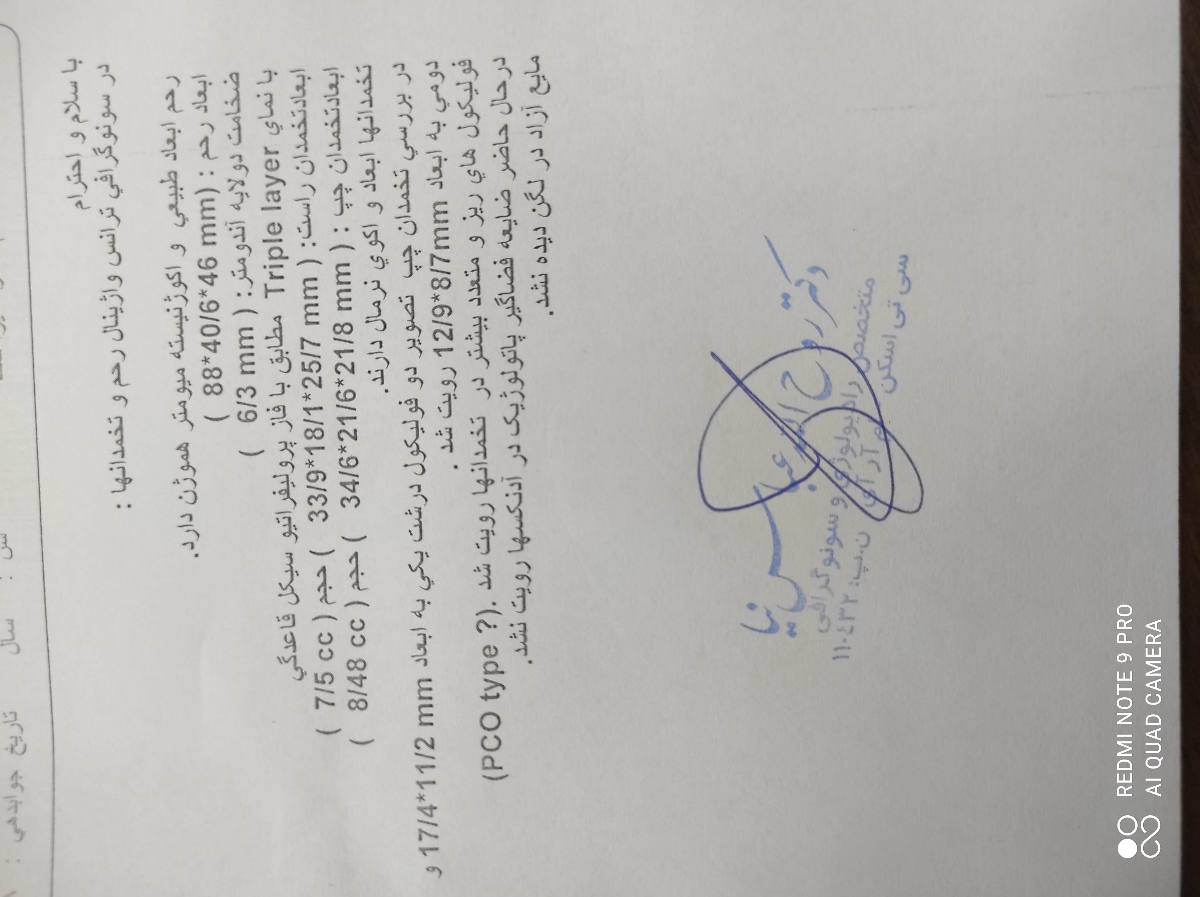 سن : سال تاریخ جوابدهی :
با سلام و احترام
در سونوگرافي ترانس واژينال رحم و تخمدانها :
رحم ابعاد طبيعي و اكوژنيسته ميومتر هموژن دارد.
ابعاد رحم : ( 88*40/6*46 mm )
ضخامت دولايه آندومتر: ( 6/3 mm )
با نماي Triple layer مطابق با فاز پروليفراتيو سيكل قاعدگي
ابعادتخمدان راست: ( 33/9*18/1*25/7 mm ) حجم ( 7/5 cc )
ابعادتخمدان چپ : ( 34/6*21/6*21/8 mm ) حجم ( 8/48 cc )
تخمدانها ابعاد و اكوي نرمال دارند.
در بررسي تخمدان چپ تصوير دو فوليكول درشت يكي به ابعاد 17/4*11/2 mm و
دومي به ابعاد 12/9*8/7mm رويت شد .
فوليكول هاي ريز و متعدد بيشتر در تخمدانها رويت شد .(PCO type ?)
درحال حاضر ضايعه فضاگير پاتولوژيک در آدنكسها رويت نشد.
مايع آزاد در لگن ديده نشد.
دکتر روح الله عباس نیا
متخصص رادیولوژی و سونوگرافی
ام آر آی ن.پ: ۱۱۰۴۳۲
سی تی اسکن
REDMI NOTE 9 PRO
AI QUAD CAMERA